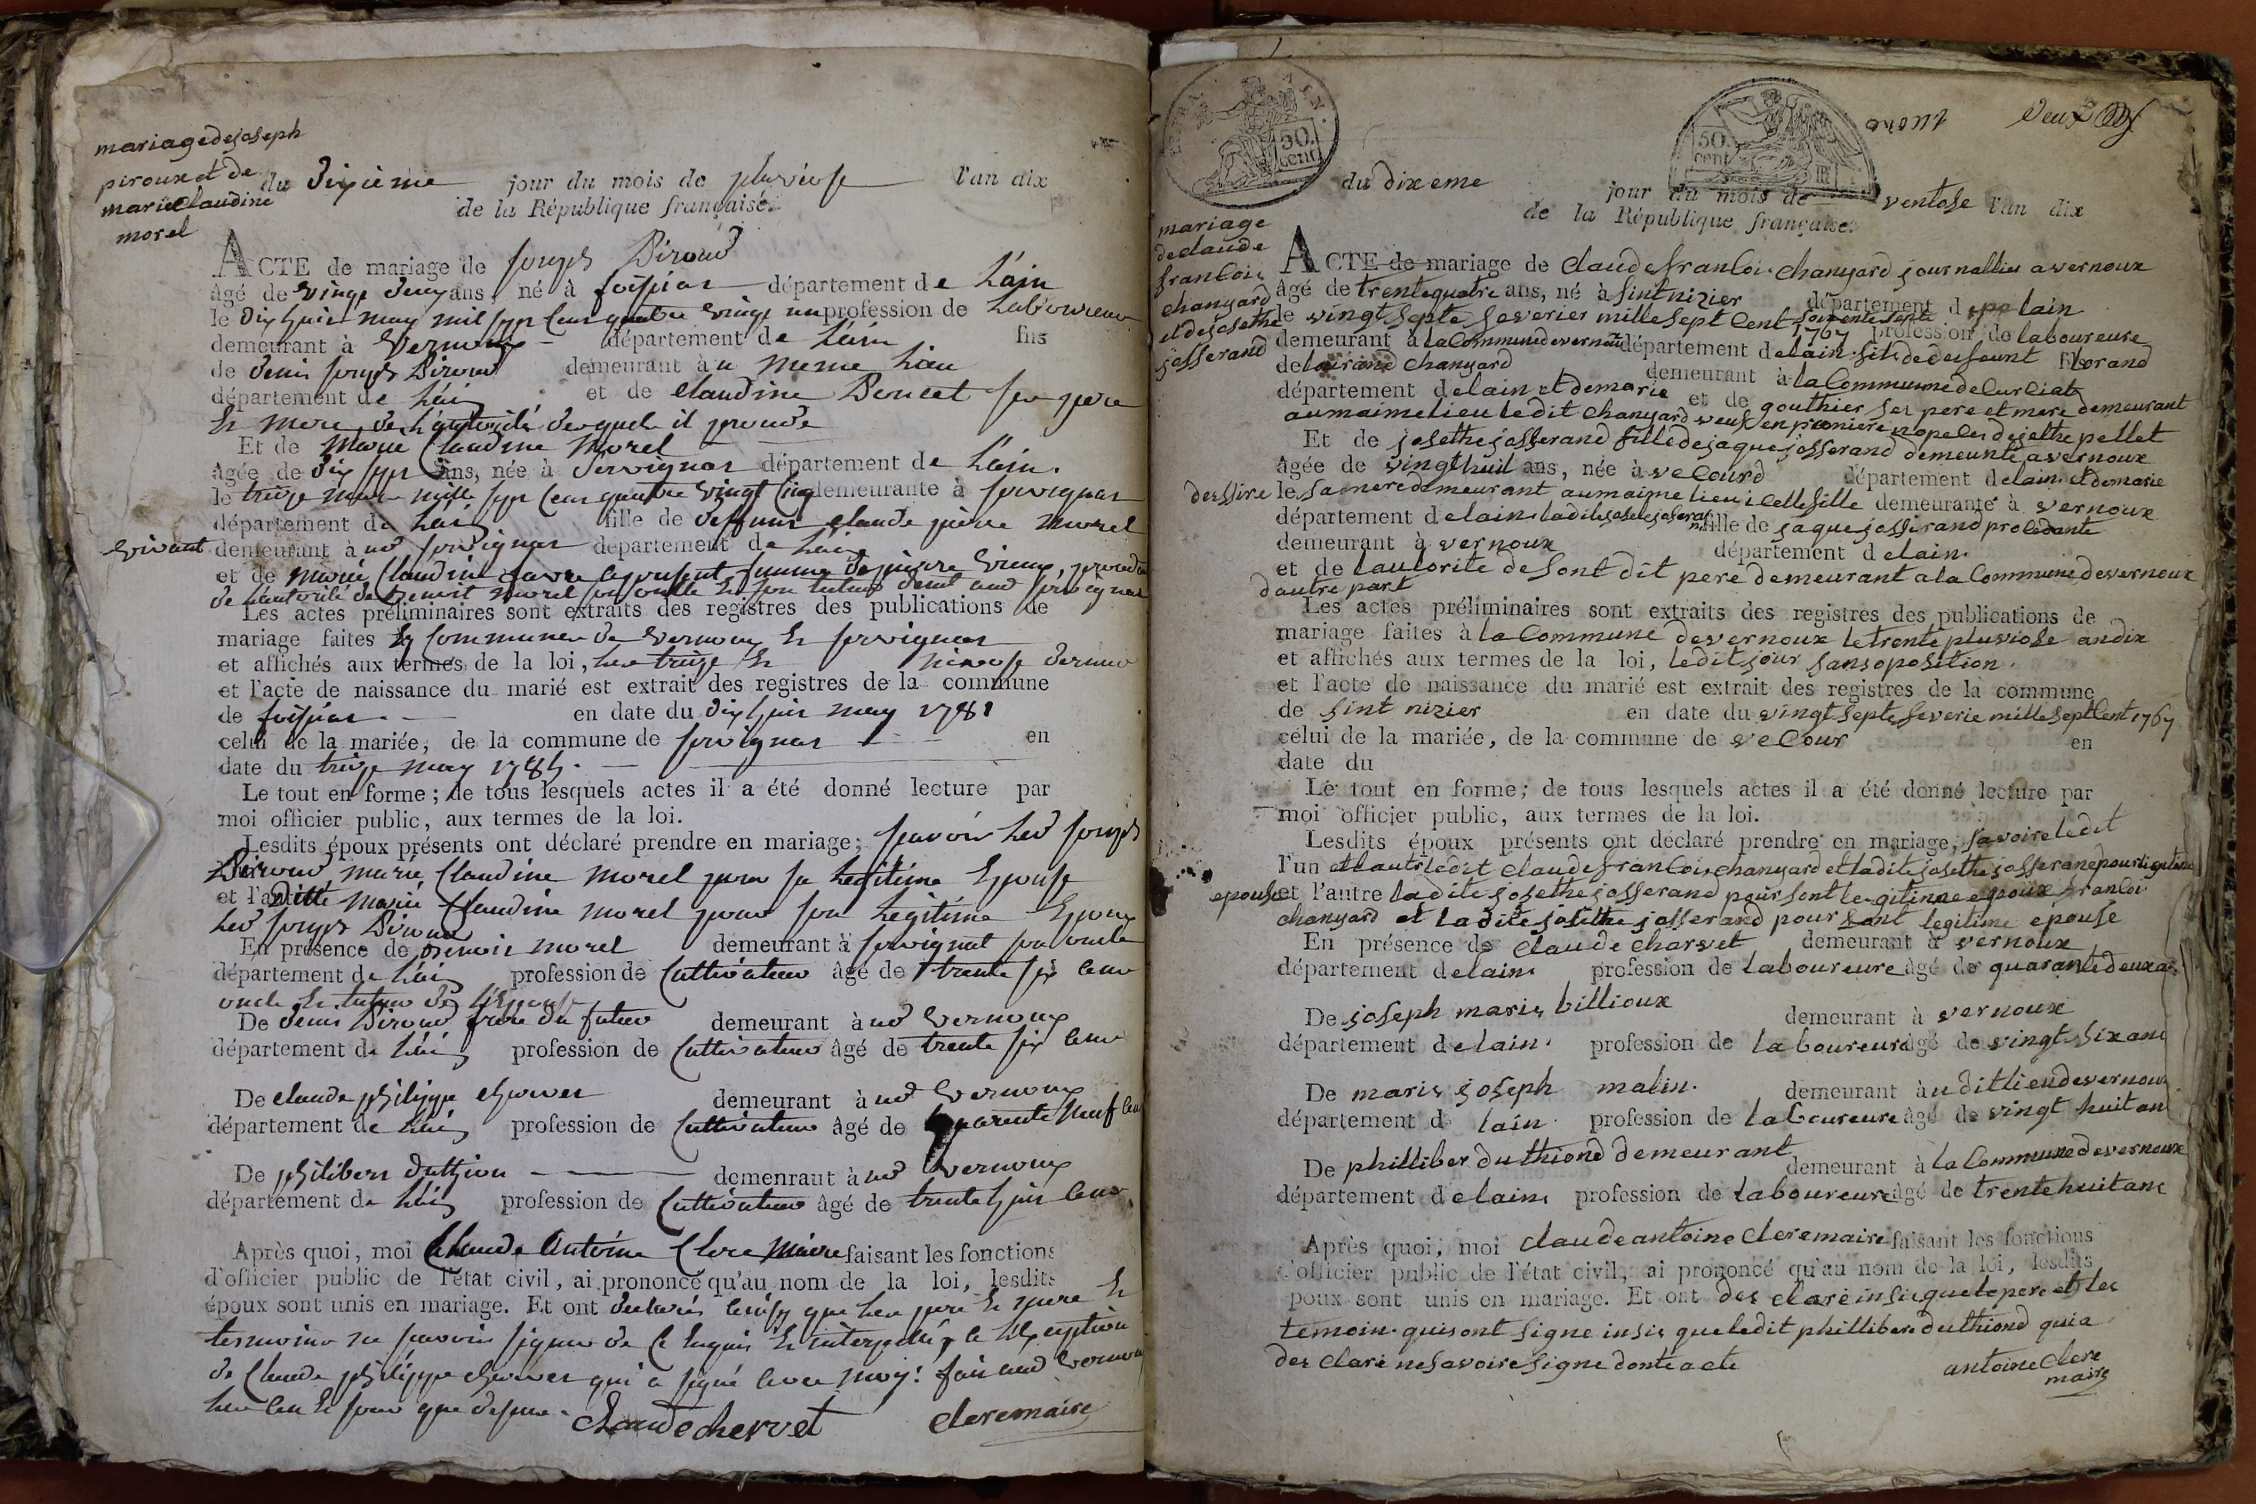 mariage de joseph
piroux et de
marie Claudine
morel
du dixième jour du mois de pluviose l'an dix
de la République française.
ACTE de mariage de joseph Piroud
âgé de vingt deux ans, né à foissiat département de L'ain
le dix huit may mil sept cent quatre vingt un profession de Laboureur
demeurant à Vernoux département de L'ain fils
de denis joseph Piroud demeurant au meme Lieu
département de L'ain et de Claudine Poncet ses pere
Et mere, de L'autorité desquels il procede
Et de Marie Claudine Morel
âgée de dix sept ans, née à Servignat département de L'ain.
le treize may mille sept cent quatre vingt cinq demeurante à servignat
département de L'ain fille de deffunt Claude piere morel
vivant demeurant à ud servignat département de L'ain
et de marie Claudine favre apresent femme de pierre vieux, procedant
de L'autorité de benoit morel son oncle Et son tuteur demt aud servignat
Les actes préliminaires sont extraits des registres des publications de
mariage faites Es Communes de vernoux Et servignat
et affichés aux termes de la loi, Les treize Et nivose dernier
et l'acte de naissance du marié est extrait des registres de la commune
de foissiat en date du dix huit may 1781
celui de la mariée, de la commune de servignat en
date du treize may 1785.
Le tout en forme; de tous lesquels actes il a été donné lecture par
moi officier public, aux termes de la loi.
Lesdits époux présents ont déclaré prendre en mariage; savoir Led joseph
Piroud marie Claudine morel pour sa Legitime Epouse
et l'autre marie Claudine morel pour son Legitime Epoux
Led joseph Piroud
En présence de benoit morel demeurant à servignat son oncle
département de L'ain profession de Cultivateur âgé de trente six ans
oncle Et tuteur de L'Epouse
De denis Piroud frere du futur demeurant à ud vernoux
département de L'ain profession de Cultivateur âgé de trente six ans
De claude philippe chervet demeurant à ud vernoux
département de L'ain profession de Cultivateur âgé de quarente neuf ans
De philibert duthion demenraut à ud vernoux
département de L'ain profession de Cultivateur âgé de trente huit ans
Après quoi, moi Claude Antoine Clere Maire faisant les fonctions
d'officier public de l'état civil, ai prononcé qu'au nom de la loi, lesdits
époux sont unis en mariage. Et ont declarés ainsy que Les pere Et mere Et
temoins ne savoir signer de ce Enquis Et interpellés a L'Exeption
de Claude philippe chervet qui a signé avec moy: fait aud vernoux
Les an Et jour que dessus.
Claude chervet clere maire
50. cent
50. cent
deux
du dixeme jour du mois de ventose l'an dix
de la République française.
mariage
de claude
francois
chanyard
et de josethe
josserand
ACTE de mariage de claude francois chanyard journallier a vernoux
âgé de trente quatre ans, né à sint nizier département d lain
le vingt septe feverier mille sept cent soixente septe 1767 profession de laboureure
demeurant à la Commune de vernoux département de lain fils de desfeunt
de lourand chanyard demeurant à la Commune de Curciat
département de lain et de marie et de gouthier ses pere et mere demeurant
au maime lieu ledit chanyard veuf en promiere nopeles de jethe pellet
Et de josethe josserand fille de jaque josserand demeurte a vernoux
âgée de vingt huit ans, née à veCourd département de lain. et de marie
desssire le sa mere demeurant au maime lieu icelle fille demeurante à vernoux
département de lain ladite josete joserand fille de jaque josserand procedante
demeurant à vernoux département d elain
et de l'autorite de sont dit pere demeurant a la Commune de vernoux
d'autre part
Les actes préliminaires sont extraits des registres des publications de
mariage faites à la Commune de vernoux le trente pluviose an dix
et affichés aux termes de la loi, ledit jour sans oposition.
et l'acte de naissance du marié est extrait des registres de la commune
de sint nizier en date du vingt septe feverie mille sept Cent 1767
celui de la mariée, de la commune de veCour en
date du
Le tout en forme; de tous lesquels actes il a été donné lecture par
moi officier public, aux termes de la loi.
Lesdits époux présents ont déclaré prendre en mariage, savoire ledit
l'un et lautr ledit claude francois chanyard et ladite josethe josserand pour legitime
epouse et l'autre ladite josethe josserand pour sont legitinne epoux francoi
chanyard et la dite josethe josserand pour sont legitime epouse
En présence de claude charvet demeurant à vernoux
département de lain profession de laboureure âgé de quarante deux ans
De joseph marie billioux demeurant à vernoux
département de lain profession de laboureure âgé de vingt six ans
De marie joseph malin. demeurant à u dit lieu de vernoux
département d lain profession de laboureure âgé de vingt huit an
De philliber duthiond demeurant demeurant à la Commune de vernoux
département de lain profession de laboureure âgé de trente huit ans
Après quoi, moi claude antoine clere maire faisant les fonctions
d'officier public de l'état civil, ai prononcé qu'au nom de la loi, lesdits
poux sont unis en mariage. Et ont des claré insi que le pere et les
temoin quisont signe insie que ledit philliber duthiond qui a
des claré ne savoire signe dont acte
antoine clere
maire